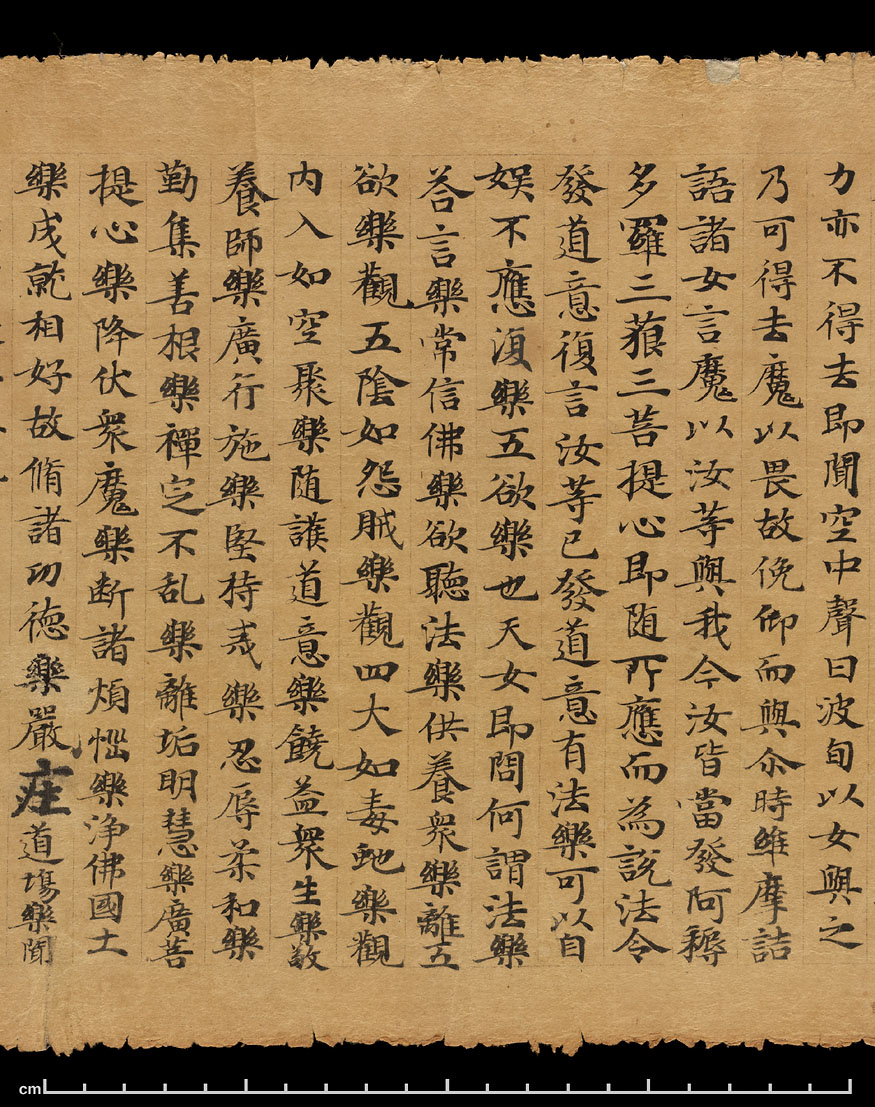 力亦不得去即聞空中聲曰波旬以女與之
乃可得去魔以畏故俛仰而與尒時維摩詰
語諸女言魔以汝等與我今汝皆當發阿耨
多羅三藐三菩提心即随所應而為說法令
發道意復言汝等已發道意有法樂可以自
娛不應復樂五欲樂也天女即問何謂法樂
荅言樂常信佛樂欲聽法樂供養衆樂離五
欲樂觀五陰如怨賊樂觀四大如毒虵樂觀
内入如空聚樂随護道意樂饒益衆生樂敬
養師樂廣行施樂堅持戒樂忍辱柔和樂
勤集善根樂禪定不乱樂離垢明慧樂廣菩
提心樂降伏衆魔樂断諸煩惱樂淨佛國土
樂成就相好故脩諸功德樂嚴庄道場樂聞
cm